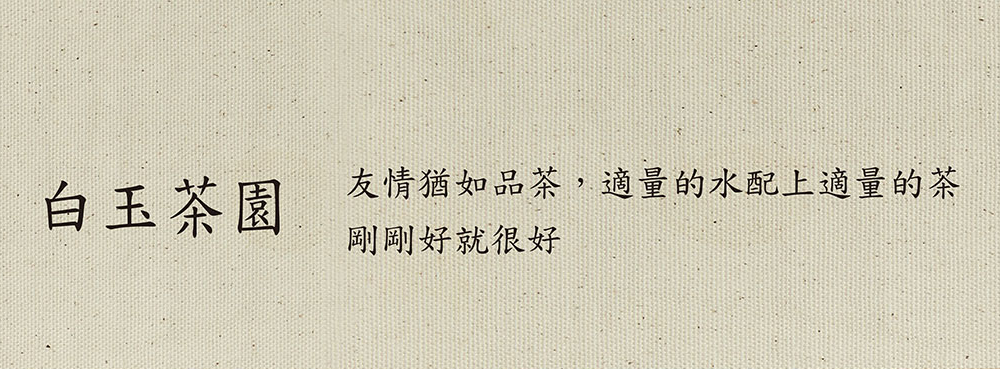 白玉茶園
友情猶如品茶，適量的水配上適量的茶
剛剛好就很好